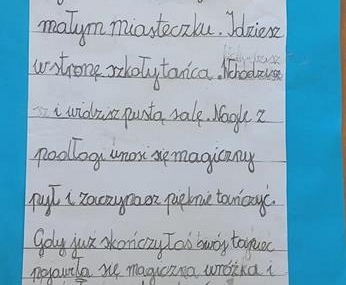 małym miasteczku. Idziesz
w stronę szkoły tańca. Wchodzisz
i widzisz pustą salę. Nagle z
podłogi unosi się magiczny
pył i zaczynasz pięknie tańczyć.
Gdy już skończyłaś swój taniec
pojawiła się magiczna wróżka i